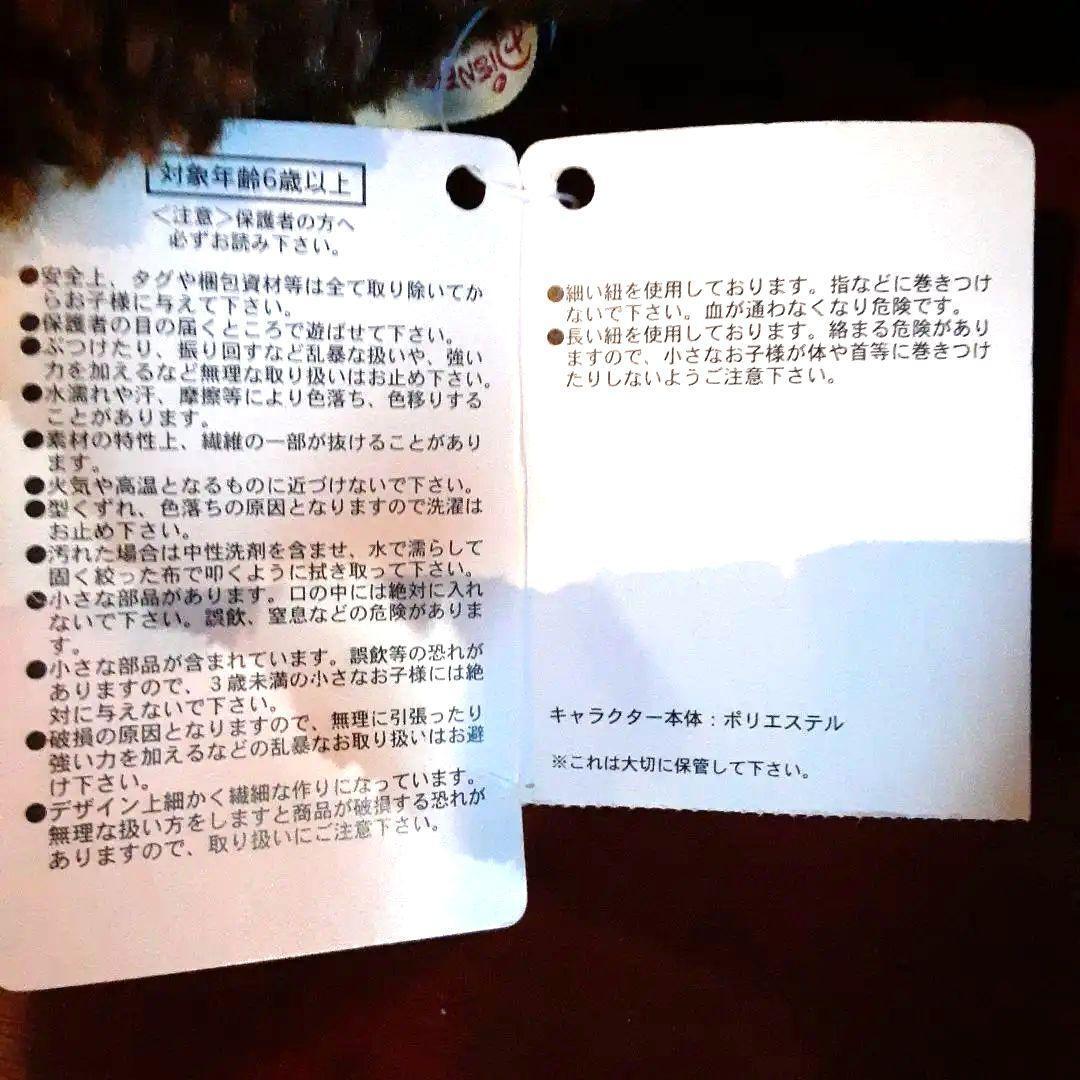 DISNE
対象年齢6歳以上
＜注意＞保護者の方へ
必ずお読み下さい。
●安全上、タグや梱包資材等は全て取り除いてか
らお子様に与えて下さい。
●保護者の目の届くところで遊ばせて下さい。
●ぶつけたり、振り回すなど乱暴な扱いや、強い
力を加えるなど無理な取り扱いはお止め下さい。
●水濡れや汗、摩擦等により色落ち、色移りする
ことがあります。
●素材の特性上、繊維の一部が抜けることがあり
ます。
●火気や高温となるものに近づけないで下さい。
●型くずれ、色落ちの原因となりますので洗濯は
お止め下さい。
●汚れた場合は中性洗剤を含ませ、水で濡らして
固く絞った布で叩くように拭き取って下さい。
●小さな部品があります。口の中には絶対に入れ
ないで下さい。誤飲、窒息などの危険がありま
す。
●小さな部品が含まれています。誤飲等の恐れが
ありますので、３歳未満の小さなお子様には絶
対に与えないで下さい。
●破損の原因となりますので、無理に引張ったり
強い力を加えるなどの乱暴なお取り扱いはお避
け下さい。
●デザイン上細かく繊細な作りになっています。
無理な扱い方をしますと商品が破損する恐れが
ありますので、取り扱いにご注意下さい。
●細い紐を使用しております。指などに巻きつけ
ないで下さい。血が通わなくなり危険です。
●長い紐を使用しております。絡まる危険があり
ますので、小さなお子様が体や首等に巻きつけ
たりしないようご注意下さい。
キャラクター本体：ポリエステル
※これは大切に保管して下さい。